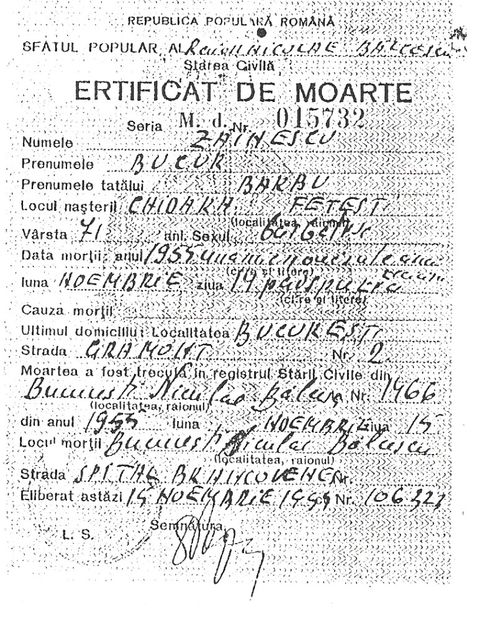 REPUBLICA POPULARĂ ROMÂNĂ
SFATUL POPULAR AL Raion NICOLAE BĂLCESCU
Starea Civilă
ERTIFICAT DE MOARTE
Seria M. d. Nr. 015732
Numele ZAINESCU
Prenumele BUCUR
Prenumele tatălui BARBU
Locul naşterii CHIOARA FETEŞTI
(localitatea, raionul)
Vârsta 71 ani. Sexul
Data morţii: anul 1955
(cifre şi litere)
luna NOEMBRIE ziua 14
(cifre şi litere)
Cauza morţii
Ultimul domiciliu: Localitatea BUCUREŞTI
Strada GRAMONT Nr. 2
Moartea a fost trecută în registrul Stării Civile din
Bucureşti Nicolae Bălcescu Nr. 1466
(localitatea, raionul)
din anul 1955 luna NOEMBRIE ziua 15
Locul morţii Bucureşti Nicolae Bălcescu
(localitatea, raionul)
Strada SPITAL BRINCOVENESC Nr.
Eliberat astăzi 15 NOEMBRIE 1955 Nr. 106323
Semnătura,
L. S.